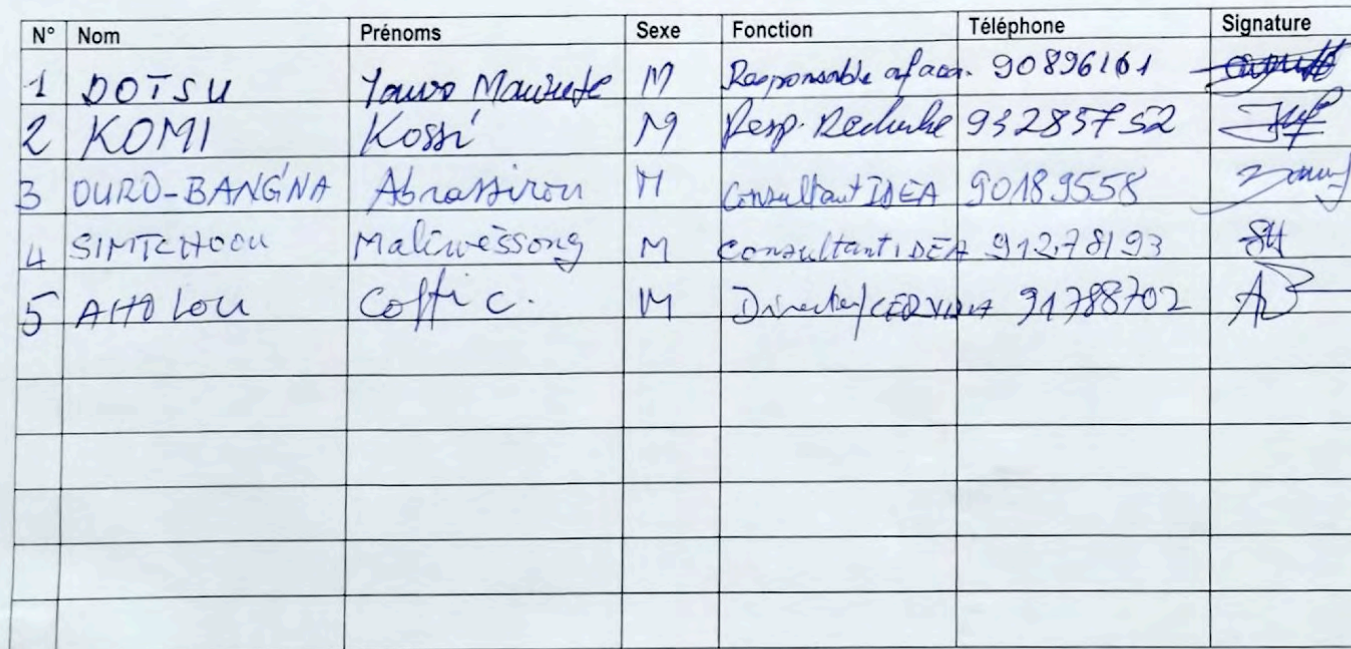 N° Nom Prénoms Sexe Fonction Téléphone Signature
1 DOTSU Yawo M Responsable af aca. 90896161
2 KOMI Kossi M Resp. Recherche 93285752
3 OURO-BANG'NA Abrassirou M Consultant IDEA 90189558
4 SIMTCHOOU Maliwèssong M Consultant IDEA 91278193
5 AHOLOU Coffi C. M 91788702